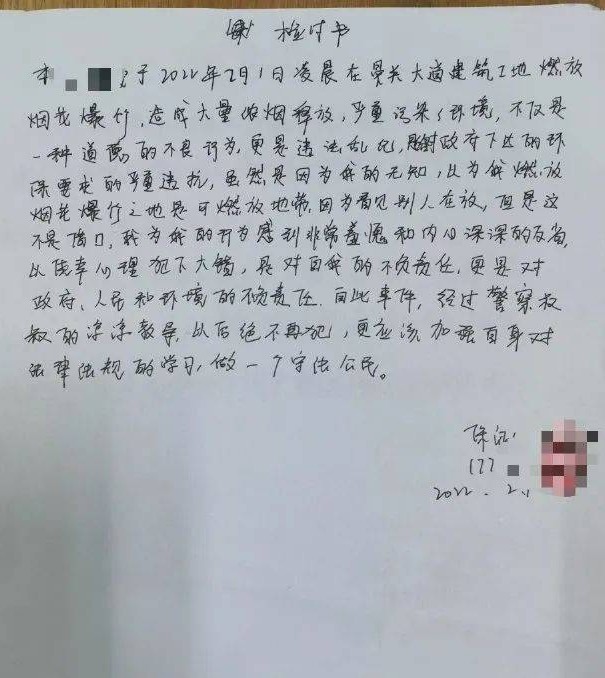 检讨书
本 于2022年2月1日凌晨在 大道建筑工地燃放
烟花爆竹,造成大量的烟释放,严重污染了环境,不仅是
一种道德的不良行为,更是违法乱纪,是对政府下达的环
保要求的严重违抗,虽然是因为我的无知,以为我燃放
烟花爆竹之地是可燃放地带,因为看见别人在放,但是这
不是借口,我为我的行为感到非常羞愧和内心深深的反省,
以侥幸心理犯下大错,是对自我的不负责任,更是对
政府、人民和环境的不负责任.由此事件,经过警察叔
叔的谆谆教导,以后绝不再犯,更应该加强自身对
法律法规的学习,做一个守法公民。
177
2022.2.1